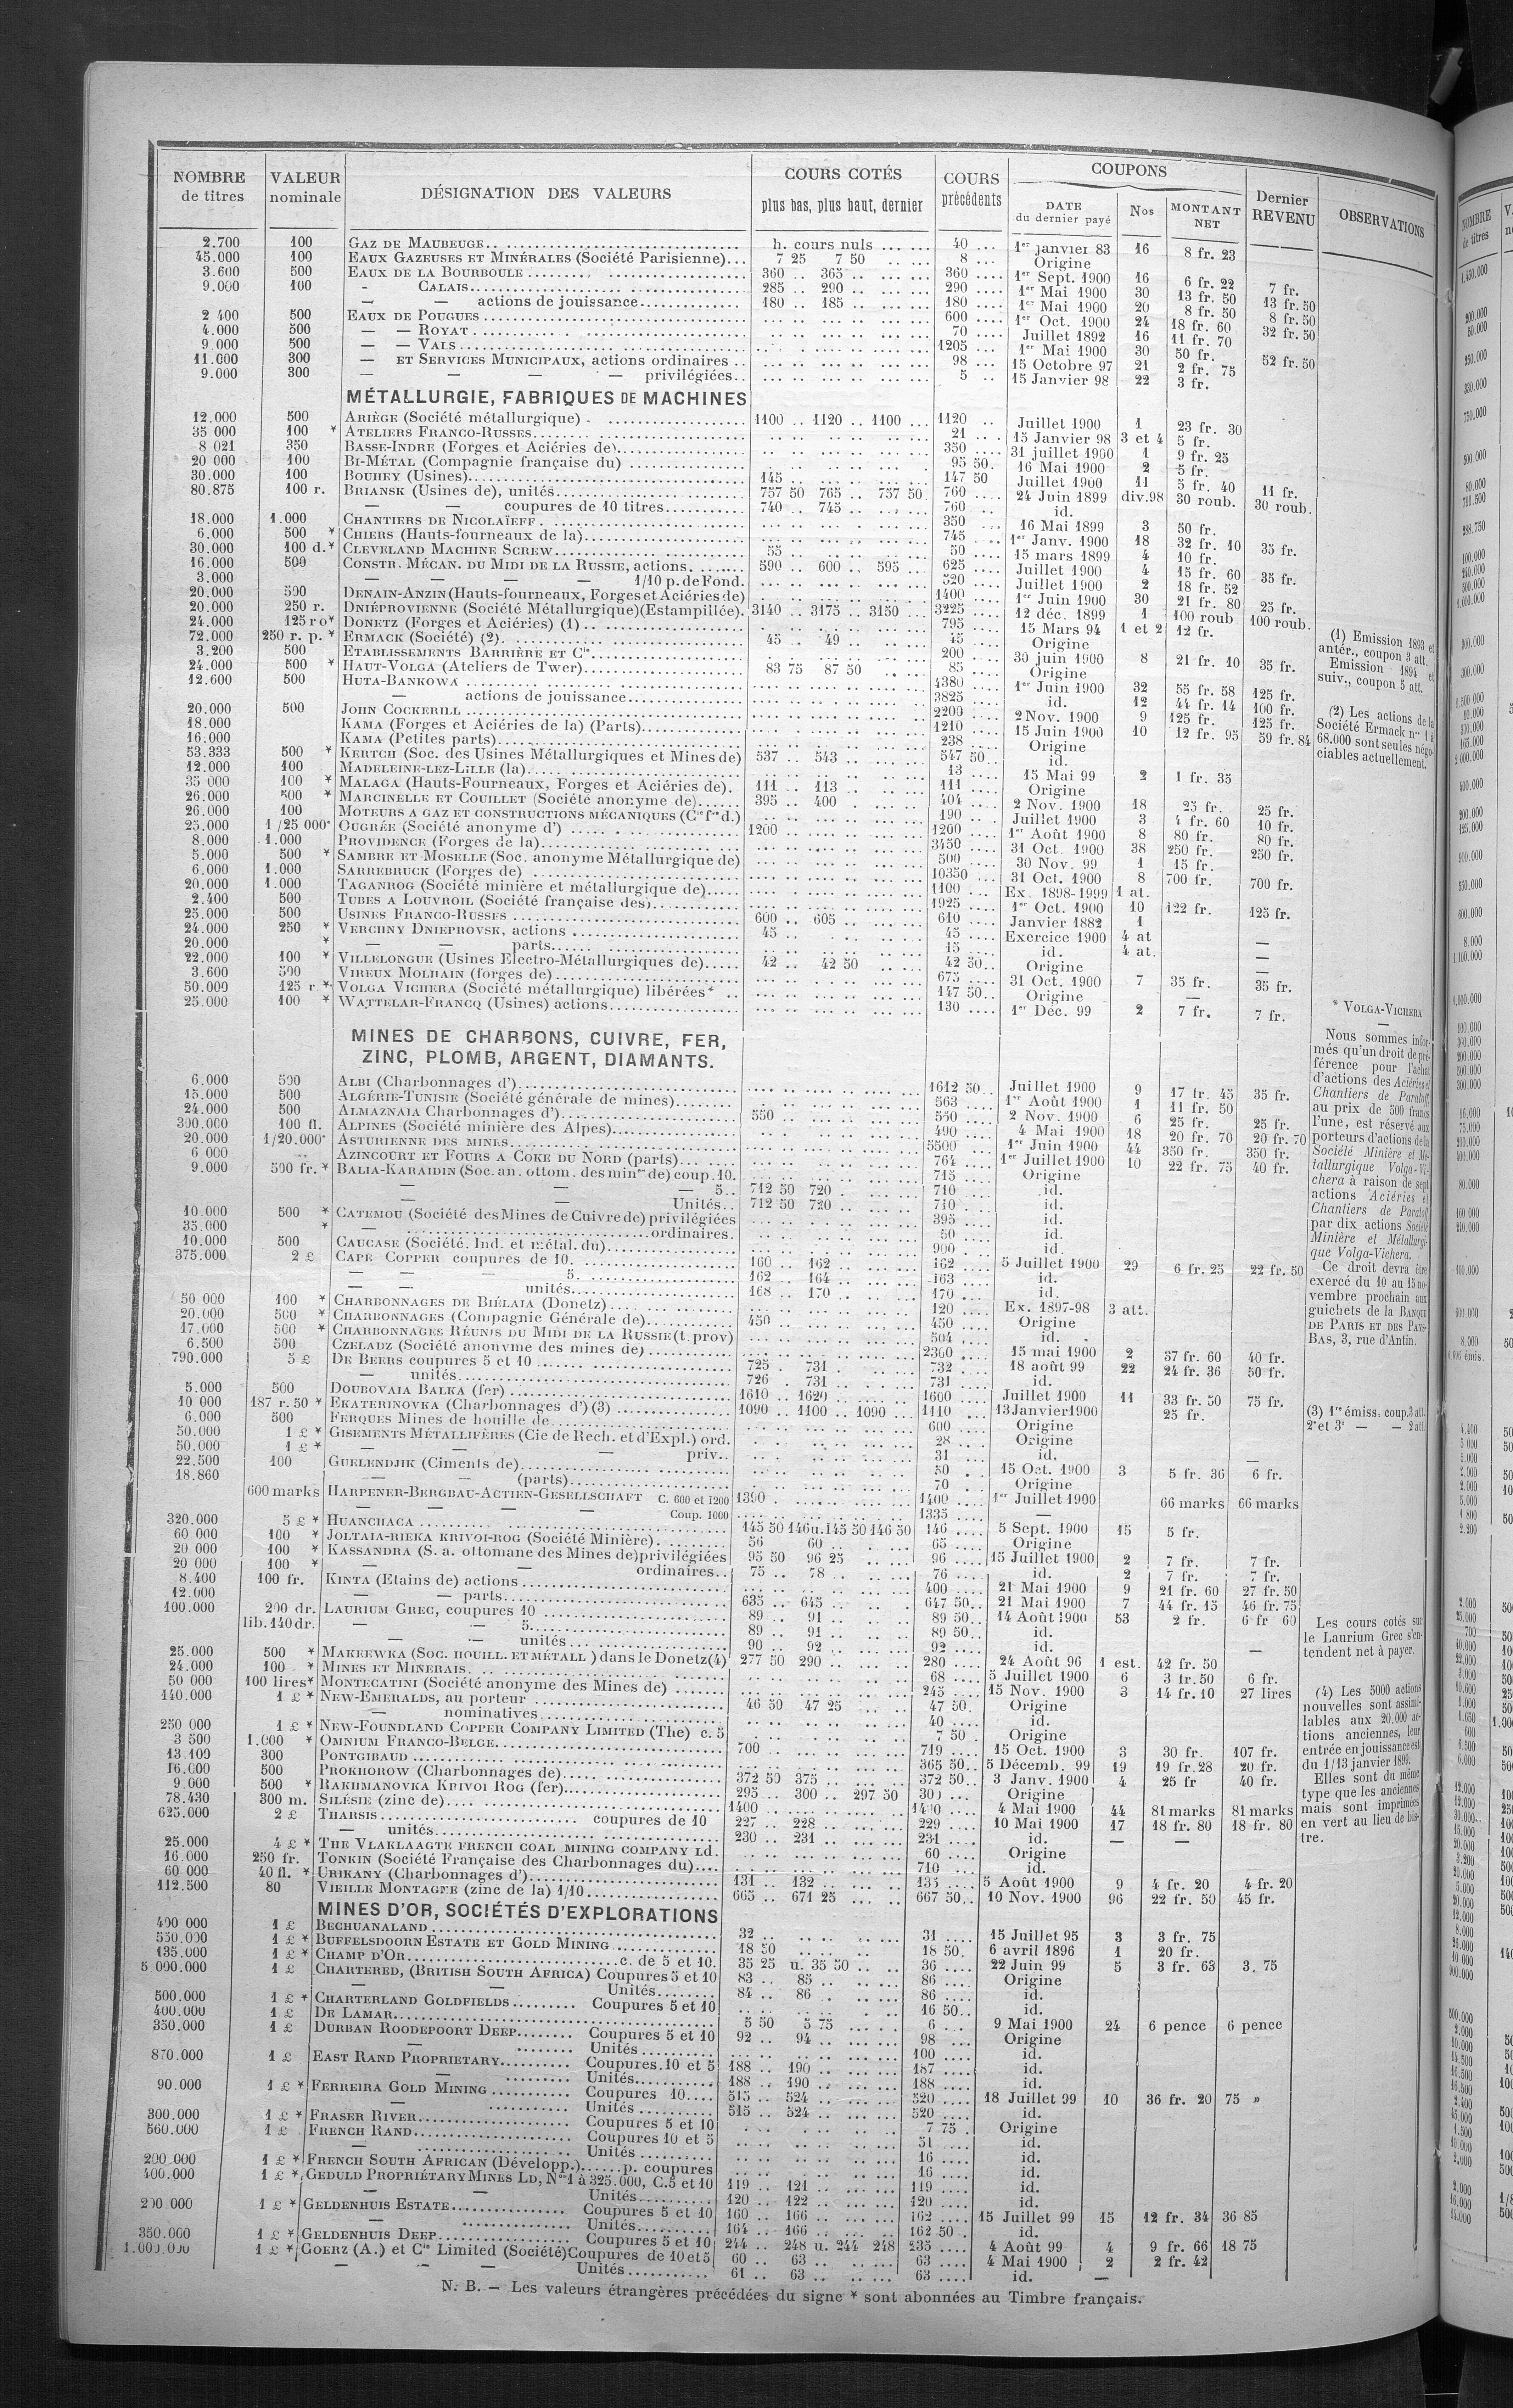 NOMBRE de titres | VALEUR nominale | DÉSIGNATION DES VALEURS | COURS COTÉS plus bas, plus haut, dernier | COURS précédents | COUPONS DATE du dernier payé | Nos | MONTANT NET | Dernier REVENU | OBSERVATIONS
2.700 100 GAZ DE MAUBEUGE h. cours nuls 40 1er janvier 83 16 8 fr. 23
45.000 100 EAUX GAZEUSES ET MINÉRALES (Société Parisienne) 7 25 7 50 8 Origine
3.600 500 EAUX DE LA BOURBOULE 360 365 360 1er Sept. 1900 16 6 fr. 22 7 fr.
9.000 100 - CALAIS 285 290 290 1er Mai 1900 30 13 fr. 50 13 fr. 50
— — actions de jouissance 180 185 180 1er Mai 1900 20 8 fr. 50 8 fr. 50
2 400 500 EAUX DE POUGUES 600 1er Oct. 1900 24 18 fr. 60 32 fr. 50
4.000 500 — — ROYAT 70 Juillet 1892 16 11 fr. 70
9 000 500 — — VALS 1205 1er Mai 1900 30 50 fr. 52 fr. 50
11.000 300 — ET SERVICES MUNICIPAUX, actions ordinaires 98 15 Octobre 97 21 2 fr. 75
9.000 300 — — — — privilégiées 5 15 Janvier 98 22 3 fr.
MÉTALLURGIE, FABRIQUES DE MACHINES
12.000 500 ARIÈGE (Société métallurgique) 1100 1120 1100 1120 Juillet 1900 1 23 fr. 30
35 000 100 * ATELIERS FRANCO-RUSSES 21 15 Janvier 98 3 et 4 5 fr.
8 021 350 BASSE-INDRE (Forges et Aciéries de) 350 31 juillet 1900 1 9 fr. 25
20 000 100 BI-MÉTAL (Compagnie française du) 95 50 16 Mai 1900 2 5 fr.
30.000 100 BOUHEY (Usines) 145 147 50 Juillet 1900 11 5 fr. 40 11 fr.
80.875 100 r. BRIANSK (Usines de), unités 757 50 765 757 50 760 24 Juin 1899 div.98 30 roub. 30 roub.
— — coupures de 10 titres 740 745 760 id.
18.000 1.000 CHANTIERS DE NICOLAÏEFF 350 16 Mai 1899 3 50 fr.
6.000 500 * CHIERS (Hauts-fourneaux de la) 745 1er Janv. 1900 18 32 fr. 10 35 fr.
30.000 100 d.* CLEVELAND MACHINE SCREW 55 50 15 mars 1899 4 10 fr.
16.000 500 CONSTR. MÉCAN. DU MIDI DE LA RUSSIE, actions 590 600 595 625 Juillet 1900 4 15 fr. 60 35 fr.
3.000 — — — — 1/10 p. de Fond. 520 Juillet 1900 2 18 fr. 52
20.000 500 DENAIN-ANZIN (Hauts-fourneaux, Forges et Aciéries de) 1400 1er Juin 1900 30 21 fr. 80 25 fr.
20.000 250 r. DNIÉPROVIENNE (Société Métallurgique) (Estampillée) 3140 3175 3150 3225 12 déc. 1899 1 100 roub 100 roub.
24.000 125 ro* DONETZ (Forges et Aciéries) (1) 795 15 Mars 94 1 et 2 12 fr.
72.000 250 r. p. * ERMACK (Société) (2) 45 49 45 Origine
3.200 500 ETABLISSEMENTS BARRIÈRE ET Cie 200 30 juin 1900 8 21 fr. 10 35 fr.
24.000 500 * HAUT-VOLGA (Ateliers de Twer) 83 75 87 50 85 Origine
12.600 500 HUTA-BANKOWA 4380 1er Juin 1900 32 55 fr. 58 125 fr.
— actions de jouissance 3825 id. 12 44 fr. 14 100 fr.
20.000 500 JOHN COCKERILL 2200 2 Nov. 1900 9 125 fr. 125 fr.
18.000 KAMA (Forges et Aciéries de la) (Parts) 1210 15 Juin 1900 10 12 fr. 95 59 fr. 84
16.000 KAMA (Petites parts) 238 Origine
53.333 500 * KERTCH (Soc. des Usines Métallurgiques et Mines de) 537 543 547 50 id.
12.000 100 MADELEINE-LEZ-LILLE (la) 13 15 Mai 99 2 1 fr. 35
35 000 100 * MALAGA (Hauts-Fourneaux, Forges et Aciéries de) 111 113 111 Origine
26.000 500 * MARCINELLE ET COUILLET (Société anonyme de) 395 400 404 2 Nov. 1900 18 25 fr. 25 fr.
26.000 100 MOTEURS A GAZ ET CONSTRUCTIONS MÉCANIQUES (Cie fse d.) 190 Juillet 1900 3 4 fr. 60 10 fr.
25.000 1/25 000* OUGRÉE (Société anonyme d') 1200 1200 1er Août 1900 8 80 fr. 80 fr.
8.000 1.000 PROVIDENCE (Forges de la) 3450 31 Oct. 1900 38 250 fr. 250 fr.
5.000 500 * SAMBRE ET MOSELLE (Soc. anonyme Métallurgique de) 500 30 Nov. 99 1 15 fr.
6.000 1.000 SARREBRUCK (Forges de) 10350 31 Oct. 1900 8 700 fr. 700 fr.
20.000 1.000 TAGANROG (Société minière et métallurgique de) 1100 Ex. 1898-1999 1 at.
2.400 500 TUBES A LOUVROIL (Société française des) 1925 1er Oct. 1900 10 122 fr. 125 fr.
25.000 500 USINES FRANCO-RUSSES 600 605 610 Janvier 1882 1
24.000 250 * VERCHNY DNIEPROVSK, actions 45 45 Exercice 1900 4 at —
20.000 * — — parts 15 id. 4 at. —
22.000 100 * VILLELONGUE (Usines Electro-Métallurgiques de) 42 42 50 42 50 Origine —
3.600 500 VIREUX MOLHAIN (forges de) 675 31 Oct. 1900 7 35 fr. 35 fr.
50.000 125 r * VOLGA VICHERA (Société métallurgique) libérées* 147 50 Origine —
25.000 100 * WATTELAR-FRANCQ (Usines) actions 130 1er Déc. 99 2 7 fr. 7 fr.
MINES DE CHARBONS, CUIVRE, FER,
ZINC, PLOMB, ARGENT, DIAMANTS.
6.000 500 ALBI (Charbonnages d') 1612 50 Juillet 1900 9 17 fr. 45 35 fr.
15.000 500 ALGÉRIE-TUNISIE (Société générale de mines) 563 1er Août 1900 1 11 fr. 50
24.000 500 ALMAZNAIA Charbonnages d') 550 550 2 Nov. 1900 6 25 fr. 25 fr.
300.000 100 fl. ALPINES (Société minière des Alpes) 490 4 Mai 1900 18 20 fr. 70 20 fr. 70
20.000 1/20.000* ASTURIENNE DES MINES 5500 1er Juin 1900 44 350 fr. 350 fr.
6 000 AZINCOURT ET FOURS A COKE DU NORD (parts) 764 1er Juillet 1900 10 22 fr. 75 40 fr.
9.000 500 fr. * BALIA-KARAIDIN (Soc. an. ottom. des mines de) coup. 10. 715 Origine
— — — 5 712 50 720 710 id.
Unités 712 50 720 710 id.
10.000 500 * CATEMOU (Société des Mines de Cuivre de) privilégiées 395 id.
35.000 * — ordinaires. 50 id.
10.000 500 CAUCASE (Société. Ind. et métal. du) 900 id.
375.000 2 £ CAPE COPPER coupures de 10. 160 162 162 5 Juillet 1900 29 6 fr. 25 22 fr. 50
— — — 5. 162 164 163 id.
— — unités 168 170 170 id.
50 000 100 * CHARBONNAGES DE BIÉLAIA (Donetz) 120 Ex. 1897-98 3 att.
20.000 500 * CHARBONNAGES (Compagnie Générale de) 450 450 Origine
17.000 500 * CHARBONNAGES RÉUNIS DU MIDI DE LA RUSSIE (t. prov) 504 id.
6.500 500 CZELADZ (Société anonyme des mines de) 2360 15 mai 1900 2 37 fr. 60 40 fr.
790.000 5 £ DE BEERS coupures 5 et 10 725 731 732 18 août 99 22 24 fr. 36 50 fr.
— unités 726 731 731 id.
5.000 500 DOUBOVAIA BALKA (fer) 1610 1620 1600 Juillet 1900 11 33 fr. 50 75 fr.
10 000 187 r. 50 * EKATERINOVKA (Charbonnages d') (3) 1090 1100 1090 1110 13 Janvier 1900 25 fr.
6.000 500 FERQUES Mines de houille de 600 Origine
50.000 1 £ * GISEMENTS MÉTALLIFÈRES (Cie de Rech. et d'Expl.) ord. 28 Origine
50.000 1 £ * — — — priv. 31 id.
22.500 100 GUELENDJIK (Ciments de) 50 15 Oct. 1900 3 5 fr. 36 6 fr.
18.860 — — (parts) 70 Origine
600 marks HARPENER-BERGBAU-ACTIEN-GESELLSCHAFT C. 600 et 1200 1390 1400 1er Juillet 1900 66 marks 66 marks
— — — Coup. 1000 1335 —
320.000 5 £ * HUANCHACA 145 50 146 u. 145 50 146 50 146 5 Sept. 1900 15 5 fr.
60 000 100 * JOLTAIA-RIEKA KRIVOI-ROG (Société Minière) 56 60 65 Origine
20 000 100 * KASSANDRA (S. a. ottomane des Mines de) privilégiées 95 50 96 25 96 15 Juillet 1900 2 7 fr. 7 fr.
20 000 100 * — — ordinaires 75 78 76 id. 2 7 fr. 7 fr.
8.400 100 fr. KINTA (Etains de) actions 400 21 Mai 1900 9 21 fr. 60 27 fr. 50
12.000 — — parts 635 645 647 50 21 Mai 1900 7 44 fr. 15 46 fr. 75
100.000 200 dr. LAURIUM GREC, coupures 10 89 91 89 50 14 Août 1900 53 2 fr. 6 fr 60
lib. 140 dr. — — 5. 89 91 89 50 id.
— — unités 90 92 92 id. —
25.000 500 * MAKEEWKA (Soc. HOUILL. ET MÉTALL) dans le Donetz (4) 277 50 290 280 24 Août 96 1 est. 42 fr. 50
24.000 100 * MINES ET MINERAIS 68 5 Juillet 1900 6 3 fr. 50 6 fr.
50 000 100 lires* MONTECATINI (Société anonyme des Mines de) 245 15 Nov. 1900 3 14 fr. 10 27 lires
140.000 1 £ * NEW-EMERALDS, au porteur 46 50 47 25 47 50 Origine
— nominatives 40 id.
250 000 1 £ * NEW-FOUNDLAND COPPER COMPANY LIMITED (The) c. 5 7 50 Origine
3 500 1.000 * OMNIUM FRANCO-BELGE 700 719 15 Oct. 1900 3 30 fr. 107 fr.
13.109 300 PONTGIBAUD 365 50 5 Décemb. 99 19 19 fr. 28 20 fr.
16.000 500 PROKHOROW (Charbonnages de) 372 50 375 372 50 3 Janv. 1900 4 25 fr 40 fr.
9.000 500 * RAKHMANOVKA KRIVOI ROG (fer) 295 300 297 50 Origine
78.430 300 m. SILÉSIE (zinc de) 1400 4 Mai 1900 44 81 marks 81 marks
625.000 2 £ THARSIS coupures de 10 227 228 229 10 Mai 1900 17 18 fr. 80 18 fr. 80
— unités 230 231 231 id. — —
25.000 4 £ * THE VLAKLAAGTE FRENCH COAL MINING COMPANY Ld. 60 Origine
16.000 250 fr. TONKIN (Société Française des Charbonnages du) 710 id.
60 000 40 fl. * URIKANY (Charbonnages d') 131 132 135 5 Août 1900 9 4 fr. 20 4 fr. 20
112.500 80 VIEILLE MONTAGNE (zinc de la) 1/10 665 671 25 667 50 10 Nov. 1900 96 22 fr. 50 45 fr.
MINES D'OR, SOCIÉTÉS D'EXPLORATIONS
400 000 1 £ BECHUANALAND 32 31 15 Juillet 95 3 3 fr. 75
550.000 1 £ * BUFFELSDOORN ESTATE ET GOLD MINING 18 50 18 50 6 avril 1896 1 20 fr.
135.000 1 £ * CHAMP D'OR c. de 5 et 10. 35 25 u. 35 50 36 22 Juin 99 5 3 fr. 63 3. 75
5 000.000 1 £ CHARTERED, (BRITISH SOUTH AFRICA) Coupures 5 et 10 83 85 86 Origine
— — Unités 84 86 86 id.
500.000 1 £ * CHARTERLAND GOLDFIELDS Coupures 5 et 10 16 50 id.
400.000 1 £ DE LAMAR 5 50 5 75 6 9 Mai 1900 24 6 pence 6 pence
350.000 1 £ DURBAN ROODEPOORT DEEP Coupures 5 et 10 92 94 98 Origine
— Unités 100 id.
870.000 1 £ EAST RAND PROPRIETARY Coupures. 10 et 5 188 190 187 id.
— Unités 188 190 188 id.
90.000 1 £ * FERREIRA GOLD MINING Coupures 10 515 524 520 18 Juillet 99 10 36 fr. 20 75 »
— Unités 515 524 520 id.
300.000 1 £ * FRASER RIVER Coupures 5 et 10 7 75 Origine
560.000 1 £ FRENCH RAND Coupures 10 et 5 51 id.
— Unités 16 id.
200.000 1 £ * FRENCH SOUTH AFRICAN (Développ.) p. coupures 16 id.
400.000 1 £ * GEDULD PROPRIÉTARY MINES LD, Nos 1 à 325.000, C. 5 et 10 119 121 119 id.
— — Unités 120 122 120 id.
200.000 1 £ * GELDENHUIS ESTATE Coupures 5 et 10 160 166 162 15 Juillet 99 15 12 fr. 34 36 85
— Unités 164 166 162 50 id.
350.000 1 £ * GELDENHUIS DEEP Coupures 5 et 10 244 248 u. 244 248 235 4 Août 99 4 9 fr. 66 18 75
1.000.000 1 £ * GOERZ (A.) et Cie Limited (Société) Coupures de 10 et 5 60 63 63 4 Mai 1900 2 2 fr. 42
— — — Unités 61 63 63 id. —
N. B. — Les valeurs étrangères précédées du signe * sont abonnées au Timbre français.
(1) Emission 1893 et
antér., coupon 3 att.
Emission 1894 et
suiv., coupon 5 att.
(2) Les actions de la
Société Ermack nos 1 à
68.000 sont seules négo-
ciables actuellement.
* VOLGA-VICHERA
—
Nous sommes infor-
més qu'un droit de pré-
férence pour l'achat
d'actions des Aciéries et
Chantiers de Paratoff,
au prix de 500 francs
l'une, est réservé aux
porteurs d'actions de la
Société Minière et Mé-
tallurgique Volga-Vi-
chera à raison de sept
actions Aciéries et
Chantiers de Paratoff
par dix actions Société
Minière et Métallurgi-
que Volga-Vichera.
Ce droit devra être
exercé du 10 au 15 no-
vembre prochain aux
guichets de la BANQUE
DE PARIS ET DES PAYS-
BAS, 3, rue d'Antin.
(3) 1re émiss. coup. 3 att.
2e et 3e — — 2 att.
Les cours cotés sur
le Laurium Grec s'en-
tendent net à payer.
(4) Les 5000 actions
nouvelles sont assimi-
lables aux 20.000 ac-
tions anciennes, leur
entrée en jouissance est
du 1/13 janvier 1899.
Elles sont du même
type que les anciennes
mais sont imprimées
en vert au lieu de bis-
tre.